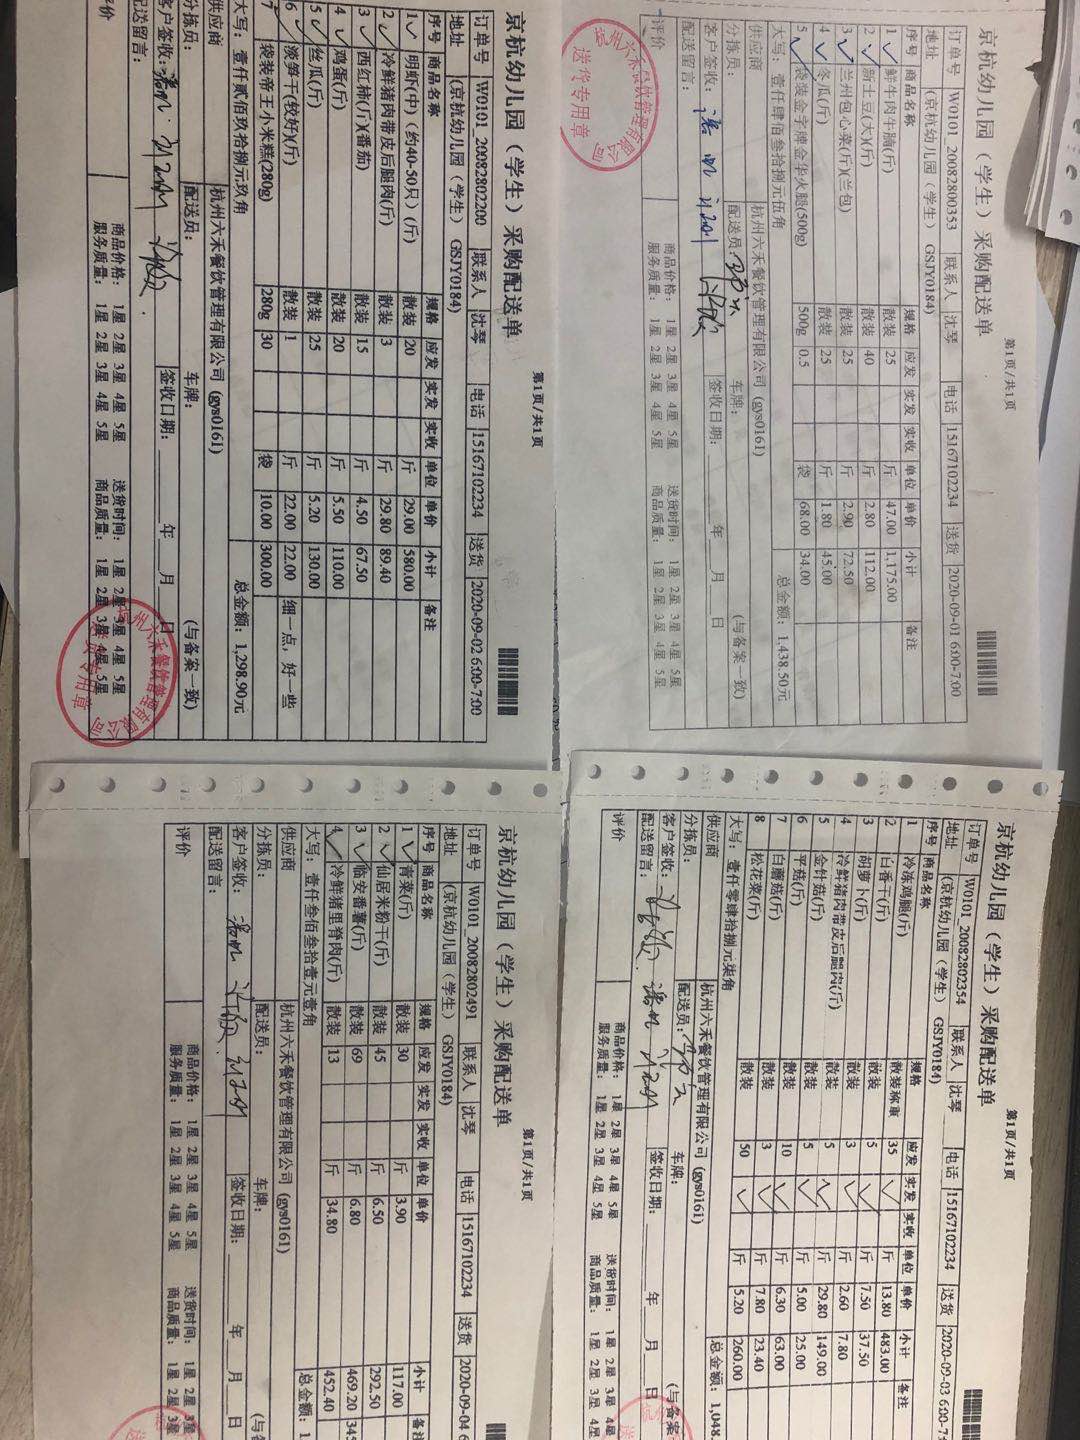 京杭幼儿园（学生）采购配送单
第1页/共1页
订单号 W0101_20082800353 联系人 沈琴 电话 15167102234 送货 2020-09-01 6:00-7:00
地址 (京杭幼儿园（学生） GSJY0184)
序号 商品名称 规格 应发 实发 实收 单位 单价 小计 备注
1 鲜牛肉牛腩(斤) 散装 25 斤 47.00 1,175.00
2 新土豆(大)(斤) 散装 40 斤 2.80 112.00
3 兰州包心菜(斤)(兰包) 散装 25 斤 2.90 72.50
4 冬瓜(斤) 散装 25 斤 1.80 45.00
5 袋装金字牌金华火腿(500g) 500g 0.5 袋 68.00 34.00
大写：壹仟肆佰叁拾捌元伍角 总金额：1,438.50元
供应商 杭州六禾餐饮管理有限公司 (gys0161)
分拣员： 配送员： 车牌： (与备案一致)
客户签收： 签收日期： 年 月 日
配送留言：
评价 商品价格： 1星 2星 3星 4星 5星 送货时间： 1星 2星 3星 4星 5星
服务质量： 1星 2星 3星 4星 5星 商品质量： 1星 2星 3星 4星 5星
杭州六禾餐饮管理有限公司
送货专用章
京杭幼儿园（学生）采购配送单
第1页/共1页
订单号 W0101_20082802200 联系人 沈琴 电话 15167102234 送货 2020-09-02 6:00-7:00
地址 (京杭幼儿园（学生） GSJY0184)
序号 商品名称 规格 应发 实发 实收 单位 单价 小计 备注
1 明虾(中)（约40-50只）(斤) 散装 20 斤 29.00 580.00
2 冷鲜猪肉带皮后腿肉(斤) 散装 3 斤 29.80 89.40
3 西红柿(斤)(番茄) 散装 15 斤 4.50 67.50
4 鸡蛋(斤) 散装 20 斤 5.50 110.00
5 丝瓜(斤) 散装 25 斤 5.20 130.00
6 淡笋干(较好)(斤) 散装 1 斤 22.00 22.00 细一点，好一些
7 袋装帝王小米糕(280g) 280g 30 袋 10.00 300.00
大写：壹仟贰佰玖拾捌元玖角 总金额：1,298.90元
供应商 杭州六禾餐饮管理有限公司 (gys0161)
分拣员： 配送员： 车牌： (与备案一致)
客户签收： 签收日期： 年 月 日
配送留言：
评价 商品价格： 1星 2星 3星 4星 5星 送货时间： 1星 2星 3星 4星 5星
服务质量： 1星 2星 3星 4星 5星 商品质量： 1星 2星 3星 4星 5星
杭州六禾餐饮管理有限公司
送货专用章
京杭幼儿园（学生）采购配送单
第1页/共1页
订单号 W0101_20082802354 联系人 沈琴 电话 15167102234 送货 2020-09-03 6:00-7:
地址 (京杭幼儿园（学生） GSJY0184)
序号 商品名称 规格 应发 实发 实收 单位 单价 小计 备注
1 冷冻鸡腿(斤) 散装称重 35 斤 13.80 483.00
2 白香干(斤) 散装 5 斤 7.50 37.50
3 胡萝卜(斤) 散装 3 斤 2.60 7.80
4 冷鲜猪肉带皮后腿肉(斤) 散装 5 斤 29.80 149.00
5 金针菇(斤) 散装 5 斤 5.00 25.00
6 平菇(斤) 散装 10 斤 6.30 63.00
7 白蘑菇(斤) 散装 3 斤 7.80 23.40
8 松花菜(斤) 散装 50 斤 5.20 260.00
大写：壹仟零肆拾捌元柒角 总金额：1,048.
供应商 杭州六禾餐饮管理有限公司 (gys0161)
分拣员： 配送员： 车牌： (与备案
客户签收： 签收日期： 年 月 日
配送留言：
评价 商品价格： 1星 2星 3星 4星 5星 送货时间： 1星 2星 3星 4
服务质量： 1星 2星 3星 4星 5星 商品质量： 1星 2星 3星 4星
京杭幼儿园（学生）采购配送单
第1页/共1页
订单号 W0101_20082802491 联系人 沈琴 电话 15167102234 送货 2020-09-04 6
地址 (京杭幼儿园（学生） GSJY0184)
序号 商品名称 规格 应发 实发 实收 单位 单价 小计 备注
1 青菜(斤) 散装 30 斤 3.90 117.00
2 仙居米粉干(斤) 散装 45 斤 6.50 292.50
3 临安番薯(斤) 散装 69 斤 6.80 469.20 345
4 冷鲜猪里脊肉(斤) 散装 13 斤 34.80 452.40
大写：壹仟叁佰叁拾壹元壹角 总金额：1
供应商 杭州六禾餐饮管理有限公司 (gys0161)
分拣员： 配送员： 车牌： (与
客户签收： 签收日期： 年 月 日
配送留言：
评价 商品价格： 1星 2星 3星 4星 5星 送货时间： 1星 2星
服务质量： 1星 2星 3星 4星 5星 商品质量： 1星 2星 3星